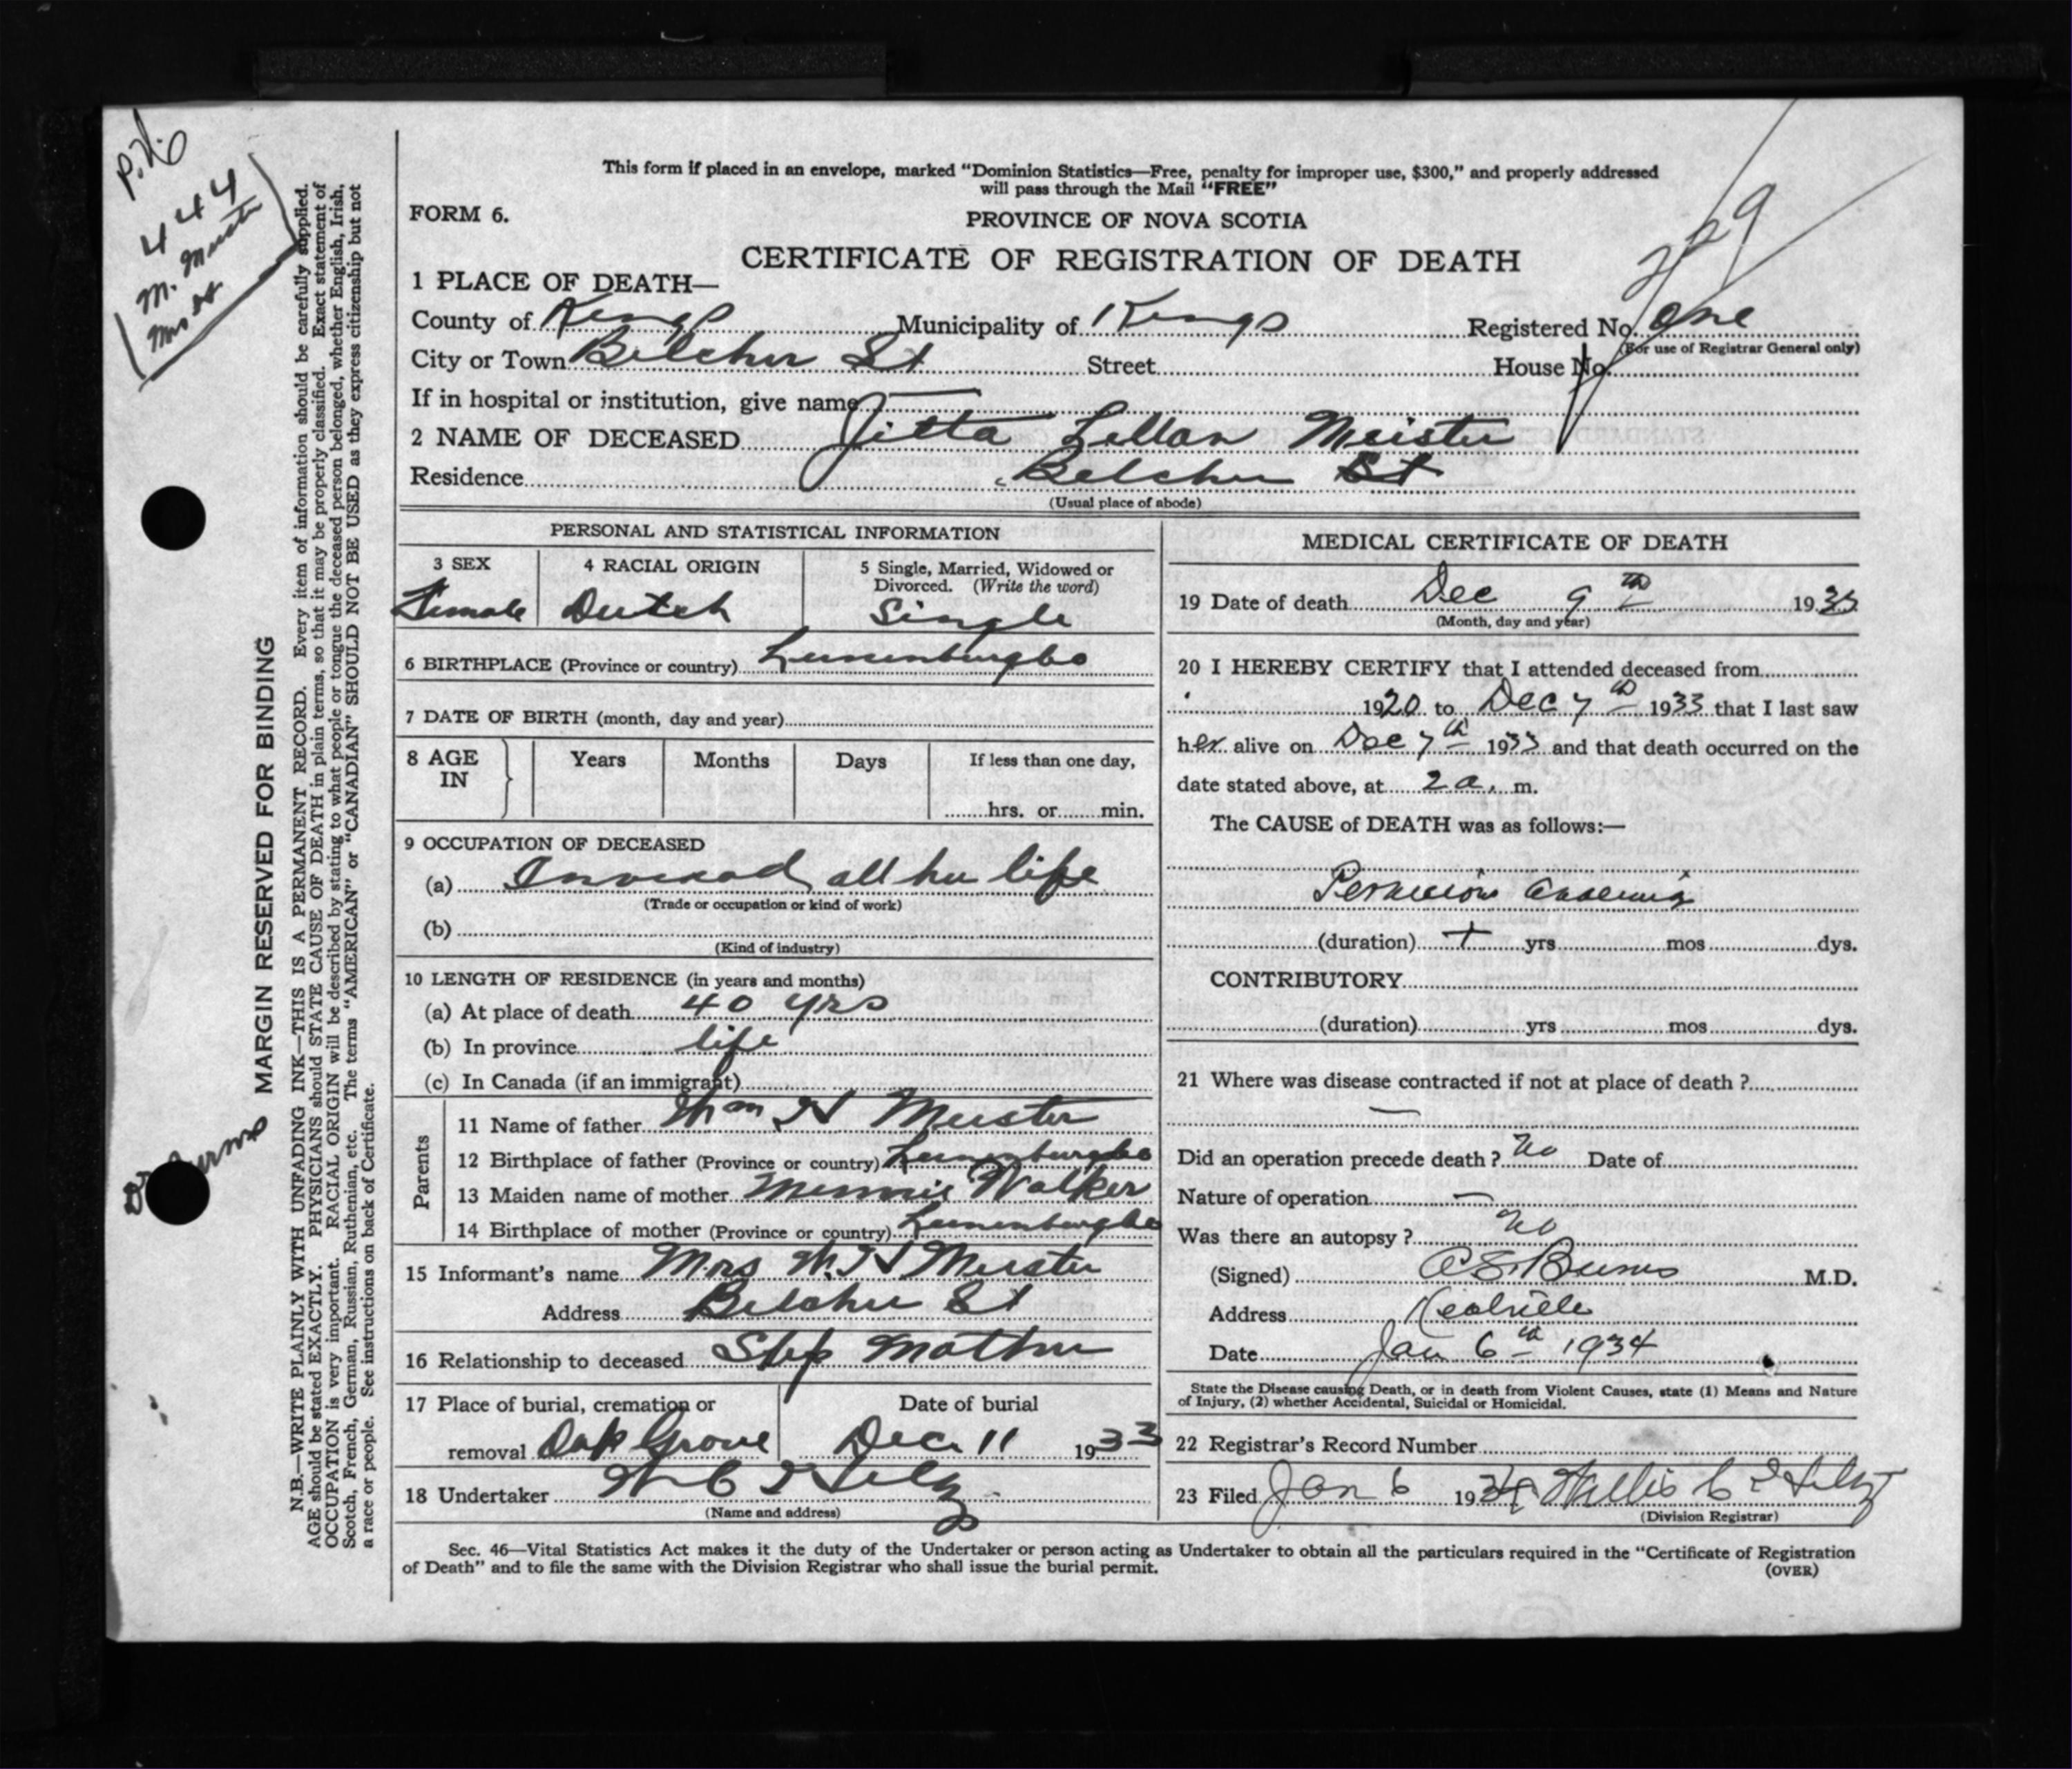 This form if placed in an envelope, marked “Dominion Statistics—Free, penalty for improper use, $300,” and properly addressed
will pass through the Mail “FREE”
FORM 6.
PROVINCE OF NOVA SCOTIA
CERTIFICATE OF REGISTRATION OF DEATH
1 PLACE OF DEATH—
County of Kings Municipality of Kings Registered No. one
(For use of Registrar General only)
City or Town Belcher St Street House No.
If in hospital or institution, give name
2 NAME OF DECEASED Lillan Meister
Residence Belcher St
(Usual place of abode)
PERSONAL AND STATISTICAL INFORMATION
3 SEX Female
4 RACIAL ORIGIN Dutch
5 Single, Married, Widowed or
Divorced. (Write the word)
Single
6 BIRTHPLACE (Province or country) LunenburgCo
7 DATE OF BIRTH (month, day and year)
8 AGE IN
Years Months Days If less than one day,
hrs. or min.
9 OCCUPATION OF DECEASED
(a) all her life
(Trade or occupation or kind of work)
(b)
(Kind of industry)
10 LENGTH OF RESIDENCE (in years and months)
(a) At place of death 40 yrs
(b) In province life
(c) In Canada (if an immigrant)
Parents
11 Name of father Wm H Meister
12 Birthplace of father (Province or country) LunenburgCo
13 Maiden name of mother Minnie Walker
14 Birthplace of mother (Province or country) LunenburgCo
15 Informant’s name Mrs W. H Meister
Address Belcher St
16 Relationship to deceased Step Mother
17 Place of burial, cremation or
removal Oak Grove
Date of burial
Dec 11 1933
18 Undertaker W C Hiltz
(Name and address)
MEDICAL CERTIFICATE OF DEATH
19 Date of death Dec 9th 1933
(Month, day and year)
20 I HEREBY CERTIFY that I attended deceased from
1920 to Dec 7th 1933 that I last saw
her alive on Dec 7th 1933 and that death occurred on the
date stated above, at 2 a. m.
The CAUSE of DEATH was as follows:—
Pernicious Anaemia
(duration) + yrs mos dys.
CONTRIBUTORY
(duration) yrs mos dys.
21 Where was disease contracted if not at place of death ?
—
Did an operation precede death ? No Date of
Nature of operation —
Was there an autopsy ? No
(Signed) A S Burns M.D.
Address Kentville
Date Jan 6th 1934
State the Disease causing Death, or in death from Violent Causes, state (1) Means and Nature
of Injury, (2) whether Accidental, Suicidal or Homicidal.
22 Registrar’s Record Number
23 Filed Jan 6 1934 Willis C Hiltz
(Division Registrar)
Sec. 46—Vital Statistics Act makes it the duty of the Undertaker or person acting as Undertaker to obtain all the particulars required in the “Certificate of Registration
of Death” and to file the same with the Division Registrar who shall issue the burial permit.
(OVER)
MARGIN RESERVED FOR BINDING
N.B.—WRITE PLAINLY WITH UNFADING INK—THIS IS A PERMANENT RECORD. Every item of information should be carefully supplied.
AGE should be stated EXACTLY. PHYSICIANS should STATE CAUSE OF DEATH in plain terms, so that it may be properly classified. Exact statement of
OCCUPATION is very important. RACIAL ORIGIN will be described by stating to what people or tongue the deceased person belonged, whether English, Irish,
Scotch, French, German, Russian, Ruthenian, etc. The terms “AMERICAN” or “CANADIAN” SHOULD NOT BE USED as they express citizenship but not
a race or people. See instructions on back of Certificate.
444
M. Meister